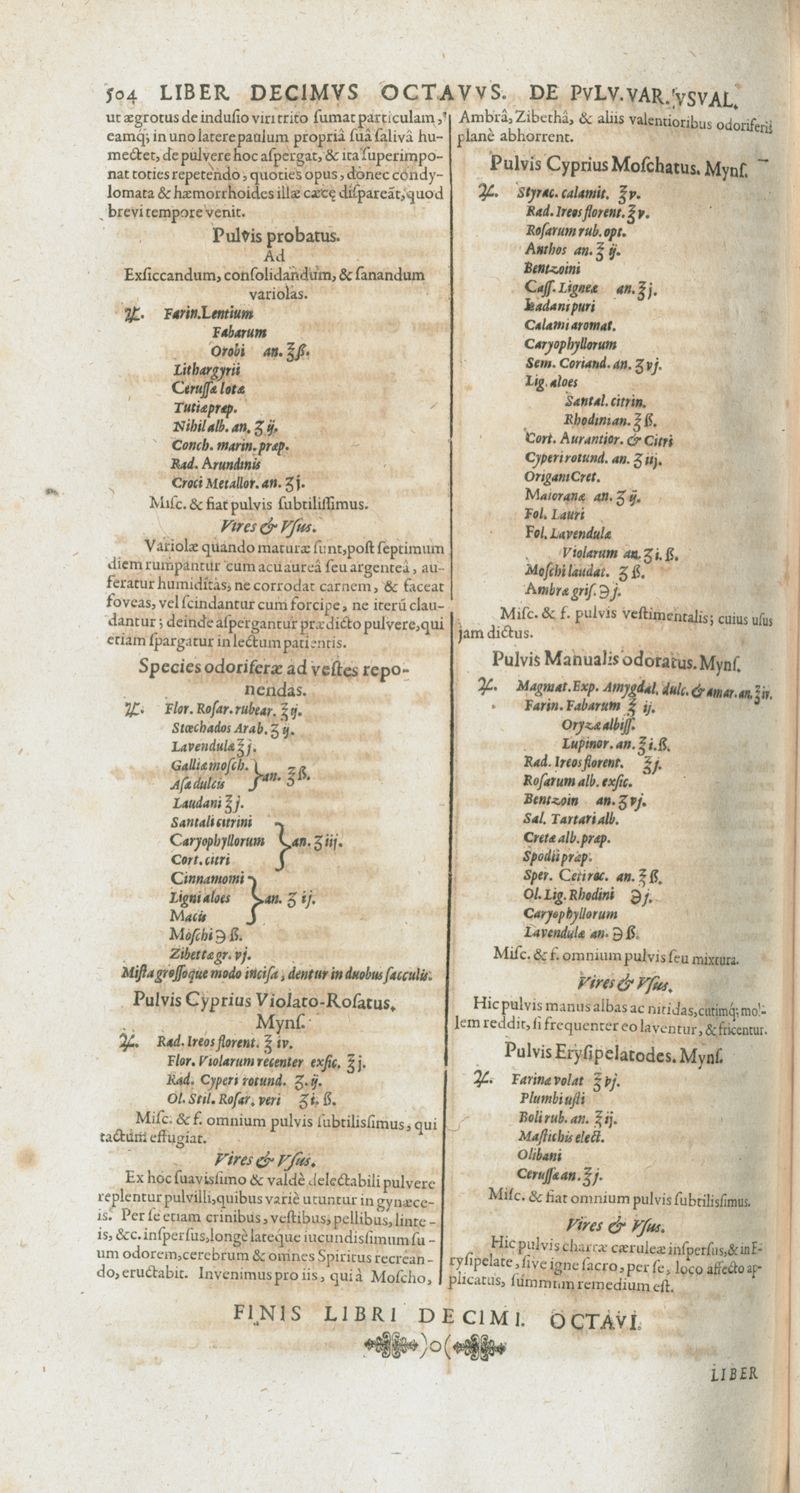 504 LIBER DECIMVS OCTAVVS. DE PVLV. VAR. VSVAL.
ut ægrotus de indusio viri trito sumat particulam,
eamq; in uno latere paulum propriâ suâ salivâ hu-
mectet, de pulvere hoc aspergat, & ita superimpo-
nat toties repetendo, quoties opus, donec condy-
lomata & hæmorrhoides illæ cæcę dispareãt, quod
brevi tempore venit.
Pulvis probatus.
Ad
Exsiccandum, consolidandum, & sanandum
variolas.
♃. Farin. Lentium
Fabarum
Orobi an. ℥ß.
Lithargyrii
Cerussæ lotæ
Tutiæ præp.
Nihil alb. an. ʒ ij.
Conch. marin. præp.
Rad. Arundinis
Croci Metallor. an. ʒj.
Misc. & fiat pulvis subtilissimus.
Vires & Vsus.
Variolæ quando maturæ sunt, post septimum
diem rumpantur cum acu aureâ seu argenteâ, au-
feratur humiditas, ne corrodat carnem, & faceat
foveas, vel scindantur cum forcipe, ne iterũ clau-
dantur; deinde aspergantur prædicto pulvere, qui
etiam spargatur in lectum patientis.
Species odoriferæ ad vestes repo-
nendas.
♃. Flor. Rosar. rubear. ℥ij.
Stœchados Arab. ʒ ij.
Lavendulæ ℥j.
Galliæ mosch.
Asæ dulcis } an. ℥ß.
Laudani ℥j.
Santali citrini
Caryophyllorum } an. ʒiij.
Cort. citri
Cinnamomi
Ligni aloes } an. ʒ ij.
Macis
Moschi ℈ ß.
Zibettæ gr. vj.
Mista grossoque modo incisa, dentur in duobus sacculis.
Pulvis Cyprius Violato-Rosatus.
Myns.
♃. Rad. Ireos florent. ℥ iv.
Flor. Violarum recenter exsic. ℥j.
Rad. Cyperi rotund. ʒ. ij.
Ol. Stil. Rosar. veri ʒi. ß.
Misc. & f. omnium pulvis subtilissimus, qui
tactum effugiat.
Vires & Vsus.
Ex hoc suavissimo & valdè delectabili pulvere
replentur pulvilli, quibus variè utuntur in gynæce-
is. Per se etiam crinibus, vestibus, pellibus, linte-
is, &c. inspersus, longè lateque iucundissimum su-
um odorem, cerebrum & omnes Spiritus recrean-
do, eructabit. Invenimus pro iis, qui à Moscho,
Ambrâ, Zibethâ, & aliis valentioribus odoriferis
planè abhorrent.
Pulvis Cyprius Moschatus. Myns.
♃. Styrac. calamit. ℥v.
Rad. Ireos florent. ℥v.
Rosarum rub. opt.
Anthos an. ℥ ij.
Bentzoini
Cass. Ligneæ an. ℥j.
Ladani puri
Calami aromat.
Caryophyllorum
Sem. Coriand. an. ʒvj.
Lig. aloes
Santal. citrin.
Rhodinian. ℥ ß.
Cort. Aurantior. & Citri
Cyperi rotund. an. ʒiij.
Origani Cret.
Maioranæ an. ʒ ij.
Fol. Lauri
Fol. Lavendulæ
Violarum an. ʒi. ß.
Moschi laudat. ʒ ß.
Ambræ gris. ℈j.
Misc. & f. pulvis vestimentalis; cuius usus
jam dictus.
Pulvis Manualis odoratus. Myns.
♃. Magmat. Exp. Amygdal. dulc. & amar. an. ℥iv.
Farin. Fabarum ℥ ij.
Oryzæ albiss.
Lupinor. an. ℥i. ß.
Rad. Ireos florent. ℥j.
Rosarum alb. exsic.
Bentzoin an. ʒvj.
Sal. Tartari alb.
Cretæ alb. præp.
Spodii præp.
Sper. Ceti rec. an. ℥ ß.
Ol. Lig. Rhodini ℈j.
Caryophyllorum
Lavendulæ an. ℈ ß.
Misc. & f. omnium pulvis seu mixtura.
Vires & Vsus.
Hic pulvis manus albas ac nitidas, cutimq; mol-
lem reddit, si frequenter eo laventur, & fricentur.
Pulvis Erysipelatodes. Myns.
♃. Farinæ volat ℥vj.
Plumbi usti
Boli rub. an. ℥ij.
Mastichis elect.
Olibani
Cerussæ an. ℥j.
Misc. & fiat omnium pulvis subtilissimus.
Vires & Vsus.
Hic pulvis chartæ cæruleæ inspersus, & in E-
rysipelate, sive igne sacro, per se, loco affecto ap-
plicatus, summum remedium est.
FINIS LIBRI DECIMI. OCTAVI.
)o(
LIBER